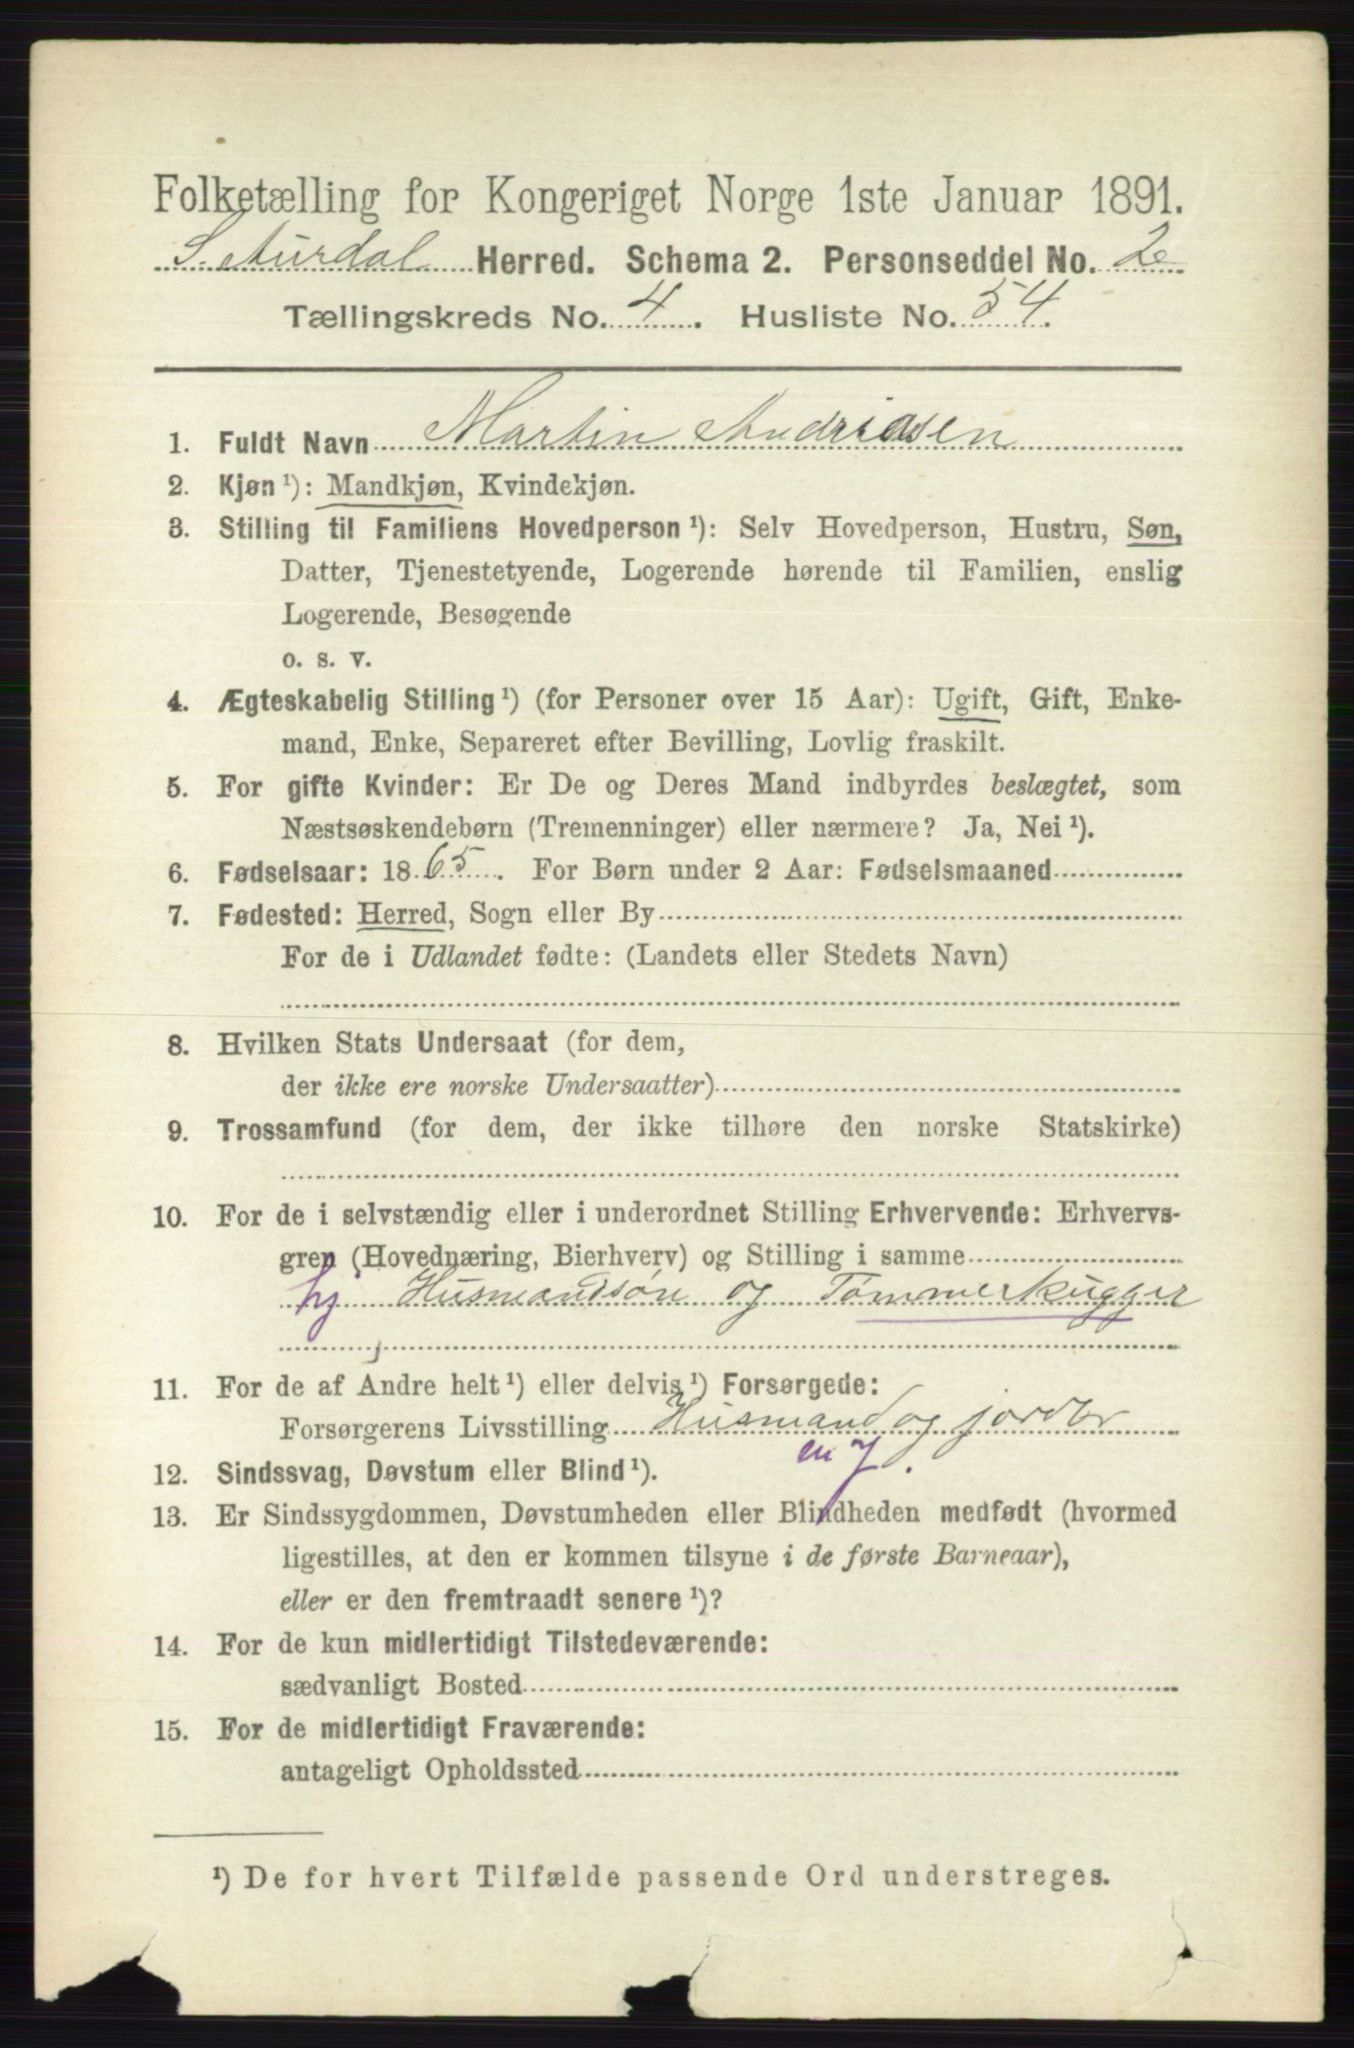 Folketælling for Kongeriget Norge 1ste Januar 1891.
S. Aurdal Herred. Schema 2. Personseddel No. 2
Tællingskreds No. 4. Husliste No. 54.
1. Fuldt Navn Martin Andriasen
2. Kjøn ¹): Mandkjøn, Kvindekjøn.
3. Stilling til Familiens Hovedperson ¹): Selv Hovedperson, Hustru, Søn,
Datter, Tjenestetyende, Logerende hørende til Familien, enslig
Logerende, Besøgende
o. s. v.
4. Ægteskabelig Stilling ¹) (for Personer over 15 Aar): Ugift, Gift, Enke-
mand, Enke, Separeret efter Bevilling, Lovlig fraskilt.
5. For gifte Kvinder: Er De og Deres Mand indbyrdes beslægtet, som
Næstsøskendebørn (Tremenninger) eller nærmere? Ja, Nei ¹).
6. Fødselsaar: 1865. For Børn under 2 Aar: Fødselsmaaned
7. Fødested: Herred, Sogn eller By
For de i Udlandet fødte: (Landets eller Stedets Navn)
8. Hvilken Stats Undersaat (for dem,
der ikke ere norske Undersaatter)
9. Trossamfund (for dem, der ikke tilhøre den norske Statskirke)
10. For de i selvstændig eller i underordnet Stilling Erhvervende: Erhvervs-
gren (Hovednæring, Bierhverv) og Stilling i samme
hj Husmandsøn og Tømmerkugger
11. For de af Andre helt ¹) eller delvis ¹) Forsørgede:
Forsørgerens Livsstilling Husmand og jordbr
12. Sindssvag, Døvstum eller Blind ¹).
13. Er Sindssygdommen, Døvstumheden eller Blindheden medfødt (hvormed
ligestilles, at den er kommen tilsyne i de første Barneaar),
eller er den fremtraadt senere ¹)?
14. For de kun midlertidigt Tilstedeværende:
sædvanligt Bosted
15. For de midlertidigt Fraværende:
antageligt Opholdssted
¹) De for hvert Tilfælde passende Ord understreges.